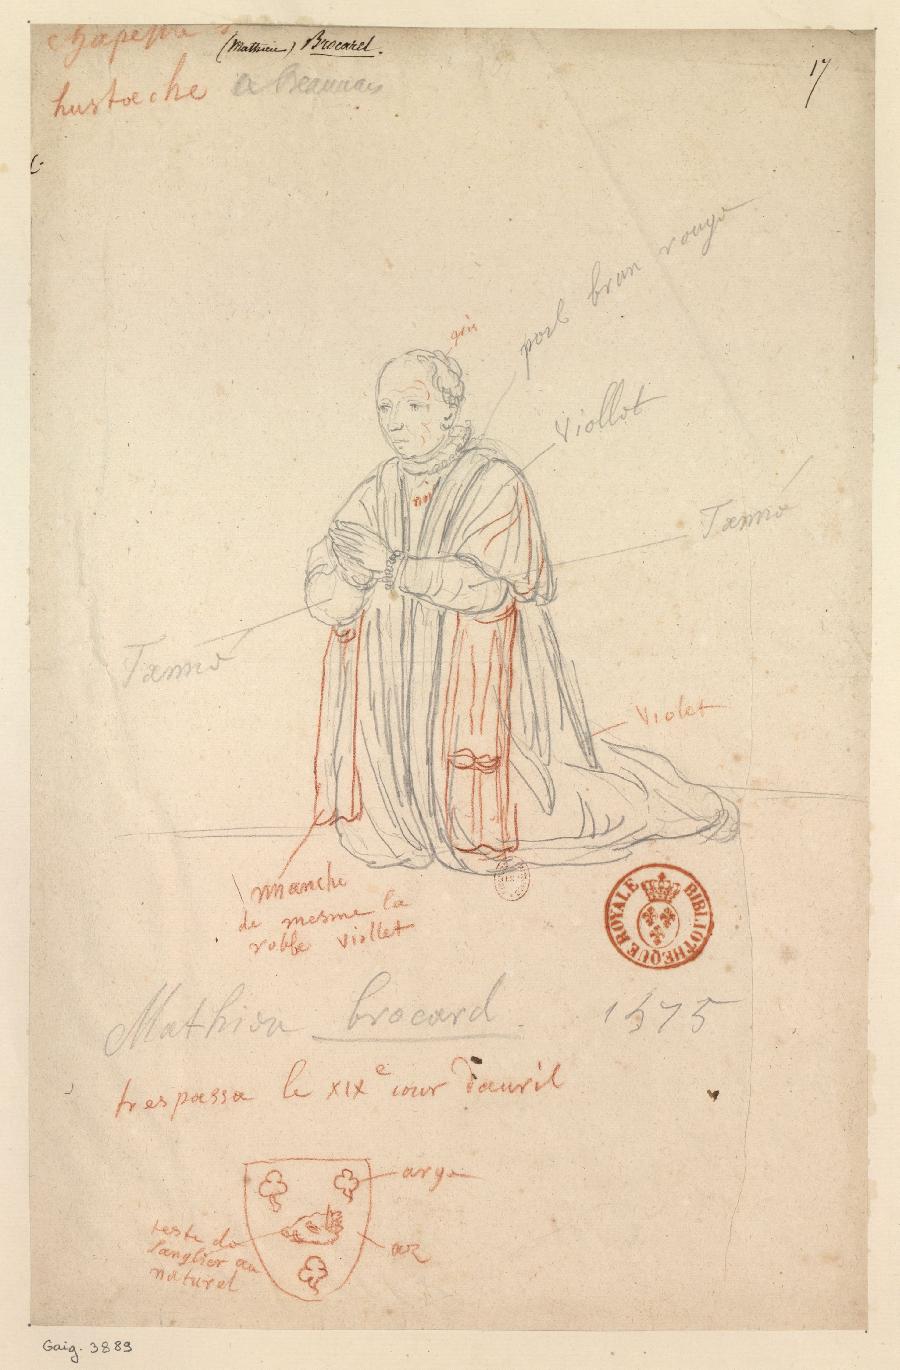 (Mathieu) Brocarel.
17
hustache a Beauvais
gris
poil brun rouge
Viollet
Tanné
Tanné
Violet
manche
de mesme la
robbe viollet
BIBLIOTHEQUE ROYALE
Mathieu brocard 1575
trespassa le XIXe iour d'auril
arg
teste de
sanglier au
naturel
az
Gaig. 3889